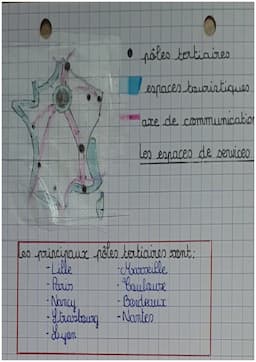 pôles tertiaires
espaces touristiques
axe de communication
Les espaces de services
Les principaux pôles tertiaires sont:
- Lille
- Marseille
- Paris
- Toulouse
- Nancy
- Bordeaux
- Strasbourg
- Nantes
- Lyon